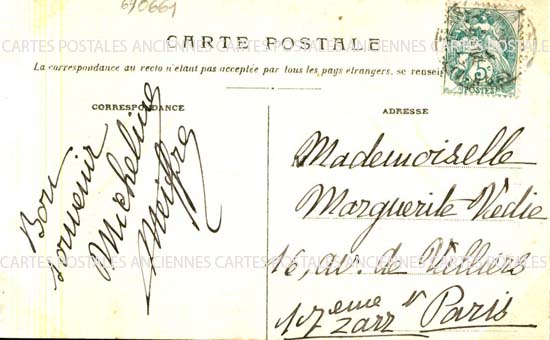 690661
CARTE POSTALE
La correspondance au recto n'étant pas acceptée par tous les pays étrangers, se renseig
CORRESPONDANCE
ADRESSE
Bon
souvenir
Micheline
Mademoiselle
Marguerite Védie
16, av. de Villiers
17eme Zarr t Paris
5
POSTES
CARTES POSTALES ANCIENNES CARTES POSTALES ANCIENNES CARTES POSTALES ANCIENNES
CARTES POSTALES ANCIENNES CARTES POSTALES ANCIENNES CARTES POSTALES ANCIENNES